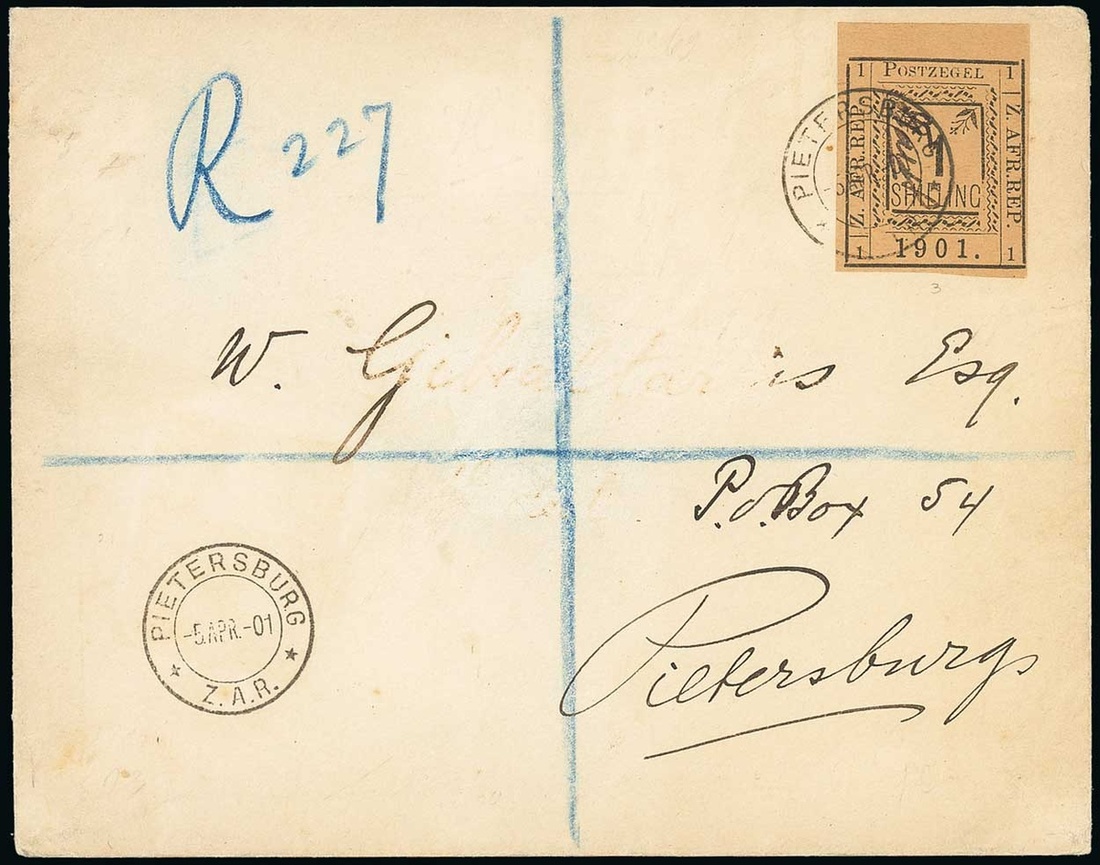 R 227
1 POSTZEGEL 1
Z. AFR. REP.
Z. AFR. REP.
1
SHILLING
1 1901. 1
PIETERSBURG
3
W. is Esq.
P.O. Box 54
Pietersburg
PIETERSBURG
-5.APR.-01
Z.A.R.